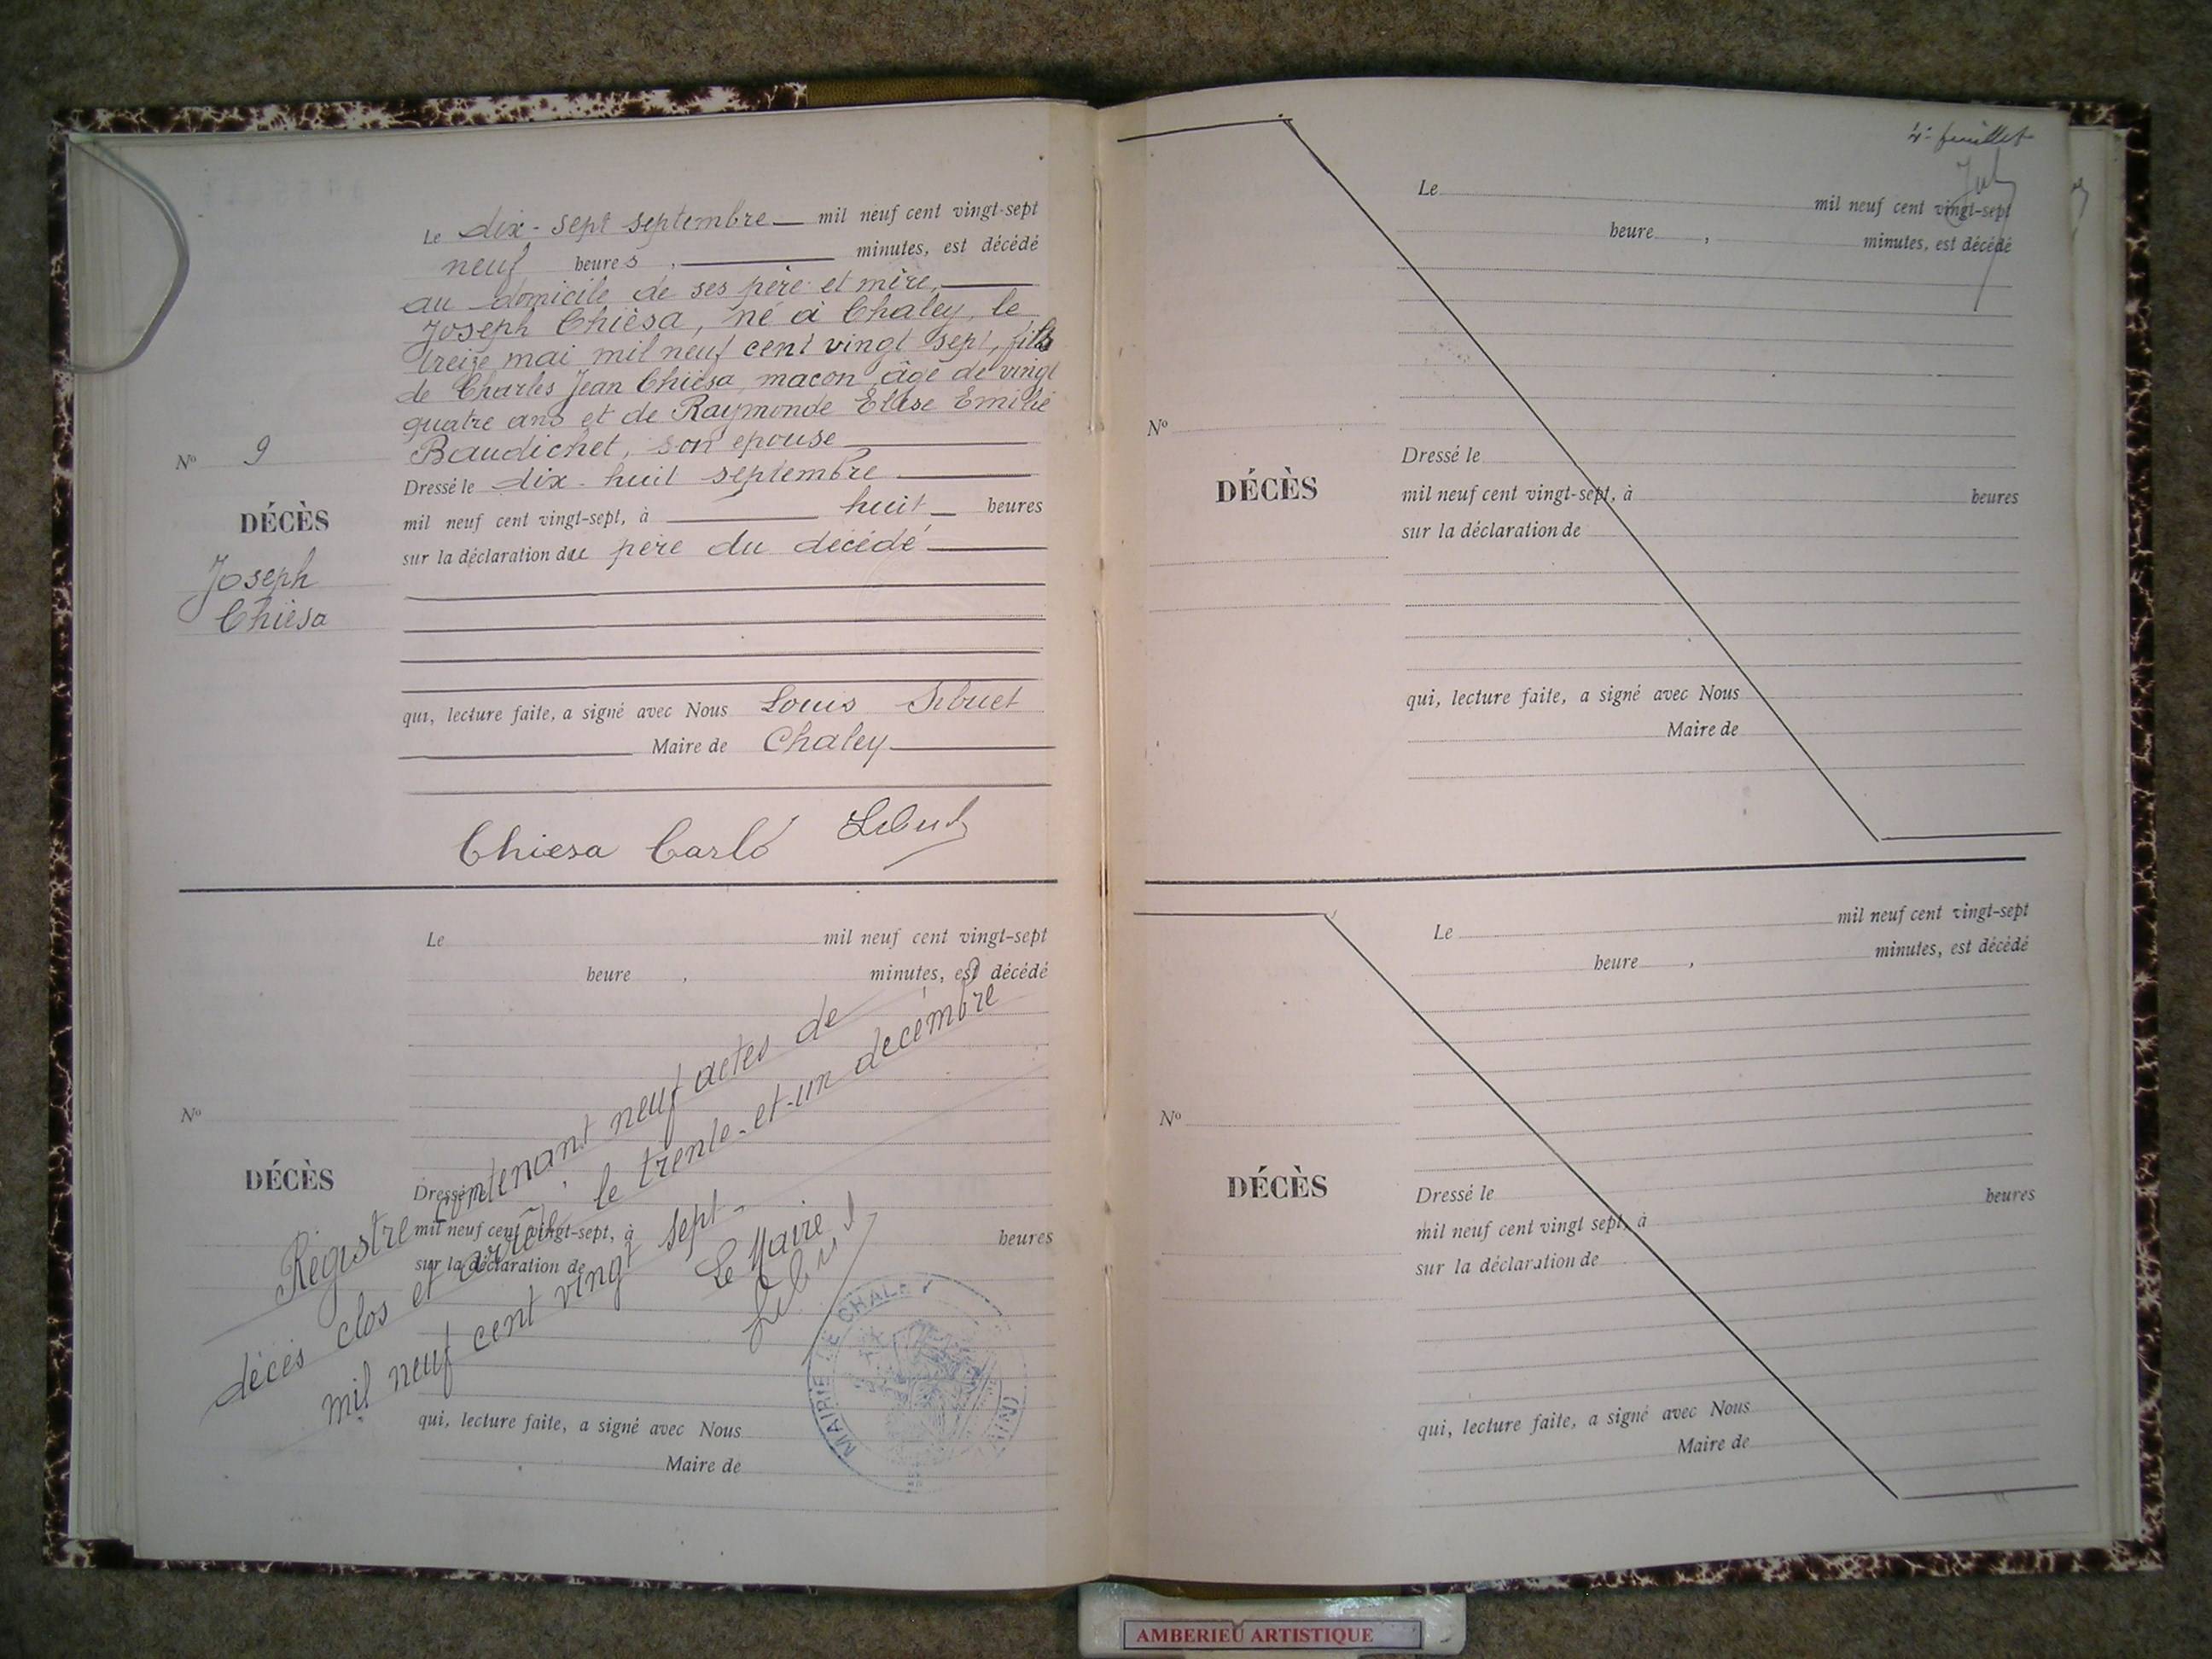 Le dix-sept septembre mil neuf cent vingt-sept
neuf heures, minutes, est décédé
au domicile de ses père et mère,
Joseph Chièsa, né à Chaley, le
treize mai mil neuf cent vingt sept, fils
de Charles Jean Chièsa, maçon âgé de vingt
quatre ans et de Raymonde Elise Emilie
Baudichet, son epouse
Dressé le dix-huit septembre
mil neuf cent vingt-sept, à huit heures
sur la déclaration du père du décédé
N° 9
DÉCÈS
Joseph
Chièsa
qui, lecture faite, a signé avec Nous Louis Sibuet
Maire de Chaley
Chiesa Carlo Sibuet
Le mil neuf cent vingt-sept
heure, minutes, est décédé
N°
DÉCÈS
Dressé le
mil neuf cent vingt-sept, à heures
sur la déclaration de
qui, lecture faite, a signé avec Nous
Maire de
Régistre contenant neuf actes de
décès clos et arrêté, le trente-et-un decémbre
mil neuf cent vingt sept.
Le Maire
Sibuet
MAIRIE DE CHALEY (AIN)
4e feuillet
Le mil neuf cent vingt-sept
heure, minutes, est décédé
N°
DÉCÈS
Dressé le
mil neuf cent vingt-sept, à heures
sur la déclaration de
qui, lecture faite, a signé avec Nous
Maire de
Le mil neuf cent vingt-sept
heure, minutes, est décédé
N°
DÉCÈS
Dressé le heures
mil neuf cent vingt sept, à
sur la déclaration de
qui, lecture faite, a signé avec Nous
Maire de
AMBERIEU ARTISTIQUE